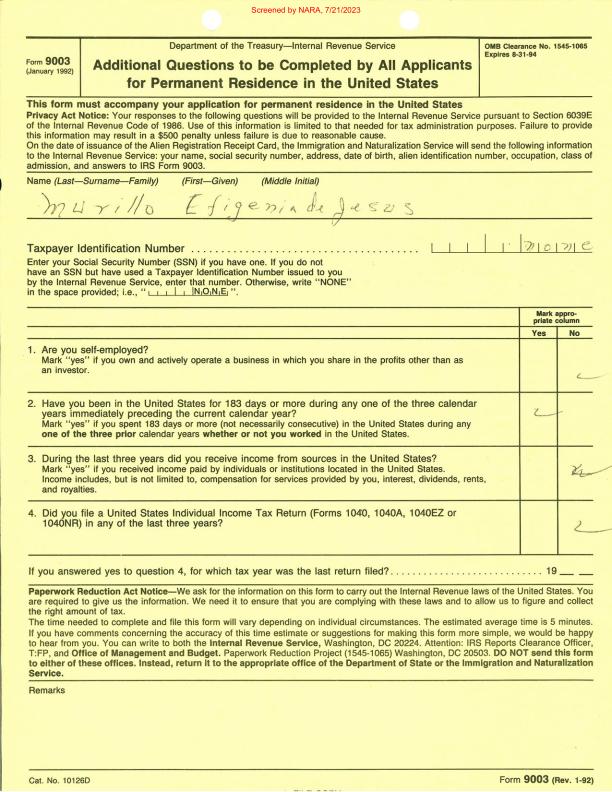 Screened by NARA, 7/21/2023
Form 9003
(January 1992)
Department of the Treasury—Internal Revenue Service
Additional Questions to be Completed by All Applicants
for Permanent Residence in the United States
OMB Clearance No. 1545-1065
Expires 8-31-94
This form must accompany your application for permanent residence in the United States
Privacy Act Notice: Your responses to the following questions will be provided to the Internal Revenue Service pursuant to Section 6039E
of the Internal Revenue Code of 1986. Use of this information is limited to that needed for tax administration purposes. Failure to provide
this information may result in a $500 penalty unless failure is due to reasonable cause.
On the date of issuance of the Alien Registration Receipt Card, the Immigration and Naturalization Service will send the following information
to the Internal Revenue Service: your name, social security number, address, date of birth, alien identification number, occupation, class of
admission, and answers to IRS Form 9003.
Name (Last—Surname—Family) (First—Given) (Middle Initial)
Murillo Efigenia de Jesus
Taxpayer Identification Number
none
Enter your Social Security Number (SSN) if you have one. If you do not
have an SSN but have used a Taxpayer Identification Number issued to you
by the Internal Revenue Service, enter that number. Otherwise, write "NONE"
in the space provided; i.e., " NONE ".
Mark appro-
priate column
Yes No
1. Are you self-employed?
Mark "yes" if you own and actively operate a business in which you share in the profits other than as
an investor.
2. Have you been in the United States for 183 days or more during any one of the three calendar
years immediately preceding the current calendar year?
Mark "yes" if you spent 183 days or more (not necessarily consecutive) in the United States during any
one of the three prior calendar years whether or not you worked in the United States.
3. During the last three years did you receive income from sources in the United States?
Mark "yes" if you received income paid by individuals or institutions located in the United States.
Income includes, but is not limited to, compensation for services provided by you, interest, dividends, rents,
and royalties.
4. Did you file a United States Individual Income Tax Return (Forms 1040, 1040A, 1040EZ or
1040NR) in any of the last three years?
If you answered yes to question 4, for which tax year was the last return filed? 19 __ __
Paperwork Reduction Act Notice—We ask for the information on this form to carry out the Internal Revenue laws of the United States. You
are required to give us the information. We need it to ensure that you are complying with these laws and to allow us to figure and collect
the right amount of tax.
The time needed to complete and file this form will vary depending on individual circumstances. The estimated average time is 5 minutes.
If you have comments concerning the accuracy of this time estimate or suggestions for making this form more simple, we would be happy
to hear from you. You can write to both the Internal Revenue Service, Washington, DC 20224. Attention: IRS Reports Clearance Officer,
T:FP, and Office of Management and Budget. Paperwork Reduction Project (1545-1065) Washington, DC 20503. DO NOT send this form
to either of these offices. Instead, return it to the appropriate office of the Department of State or the Immigration and Naturalization
Service.
Remarks
Cat. No. 10126D
Form 9003 (Rev. 1-92)